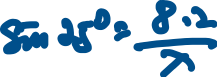 sin 25° = 8.2 / x